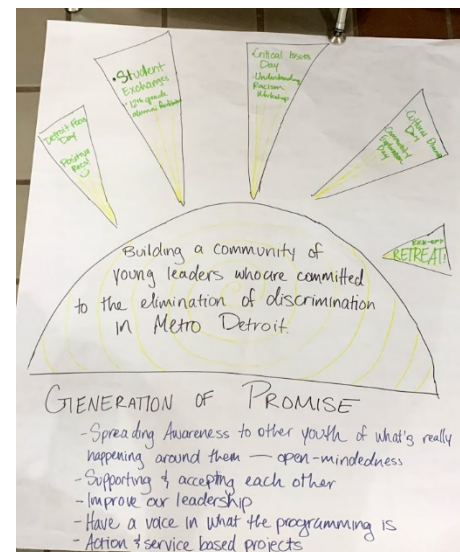 Detroit Focus
Day
Positive
Focus!
• Student
Exchanges
• 12th grade
alumni facilitators
Critical Issues
Day
- Understanding
Racism
Workshop
Cultural Dining
Day
Community
Exploration
Day
KICK-OFF
RETREAT!
Building a community of
young leaders who are committed
to the elimination of discrimination
in Metro Detroit.
GENERATION OF PROMISE
- Spreading Awareness to other youth of what's really
happening around them — open-mindedness
- Supporting & accepting each other
- Improve our leadership
- Have a voice in what the programming is
- Action & service based projects